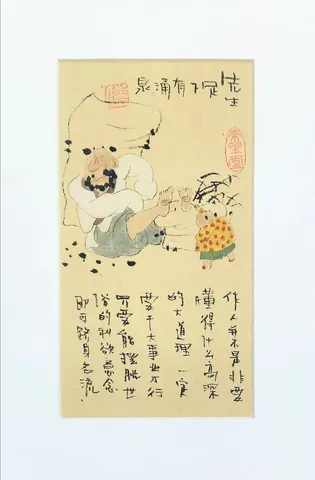 先生足下有涌泉
作人并不是非要
懂得什么高深
的大道理一定
要干大事业才行
只要能摆脱世
俗的利欲意念
即可跻身名流